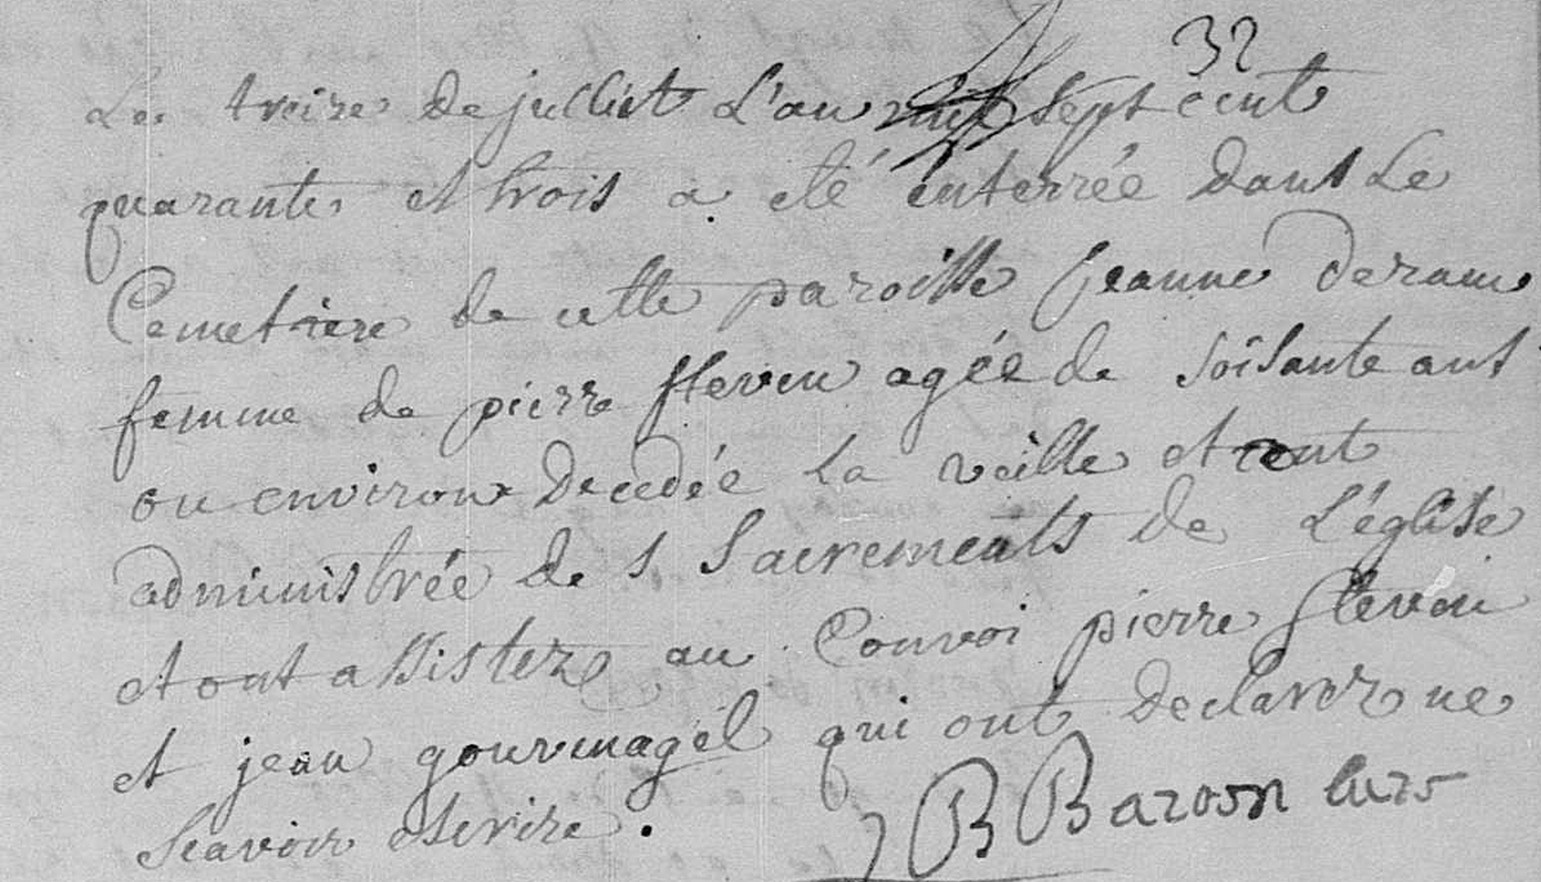 32
Le treize de juilliet L'an mil sept cent
quarante et trois a eté enterrée dans Le
Cemetiere de cette paroisse jeanne deram
femme de pierre steven agée de soisante ans
ou environ decedée la veille et ont
administrée de s sacrements de L'église
et ont assistez au Convoi pierre steven
et jean gourmagel qui ont declarez ne
scavoir escrire.
B Baroon curs